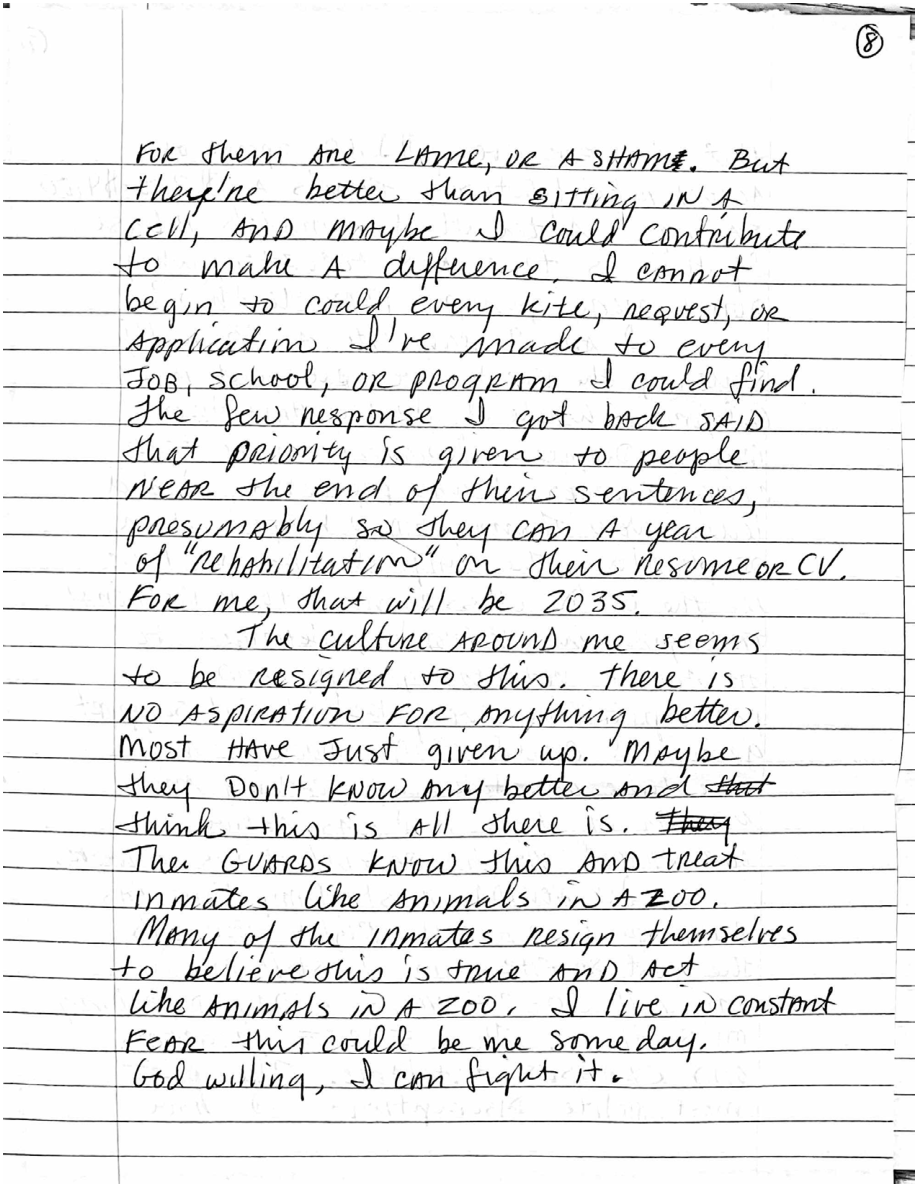 8
FOR them are LAME, OR A SHAM. But
they're better than SITTING IN A
Cell, AND MAybe I could contribute
to make A difference. I cannot
begin to could every kite, request, OR
Application I've made to every
JOB, school, OR PROGRAM I could find.
The few response I got back SAID
that PRIORITY is given to people
NEAR the end of their sentences,
presumably so they CAN A year
of "rehabilitation" on their resume OR CV.
FOR me, that will be 2035.
The culture AROUND me seems
to be Resigned to this. There is
NO ASPIRATION FOR Anything better.
Most HAVE Just given up. Maybe
they Don't KNOW Any better And that
think this is All there is. They
The GUARDS KNOW this AND treat
Inmates like Animals in A ZOO.
Many of the inmates resign themselves
to believe this is true AND Act
like ANIMALS IN A ZOO. I live IN constant
FEAR this could be me some day.
God willing, I can fight it.